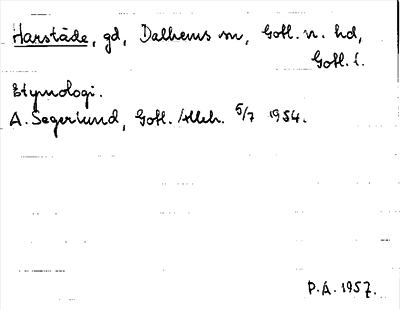 Harstäde, gd, Dalhems sn, Gotl. n. hd,
Gotl. l.
Etymologi.
A. Segerlund, Gotl. Alleh. 5/7 1954.
P.A. 1957.